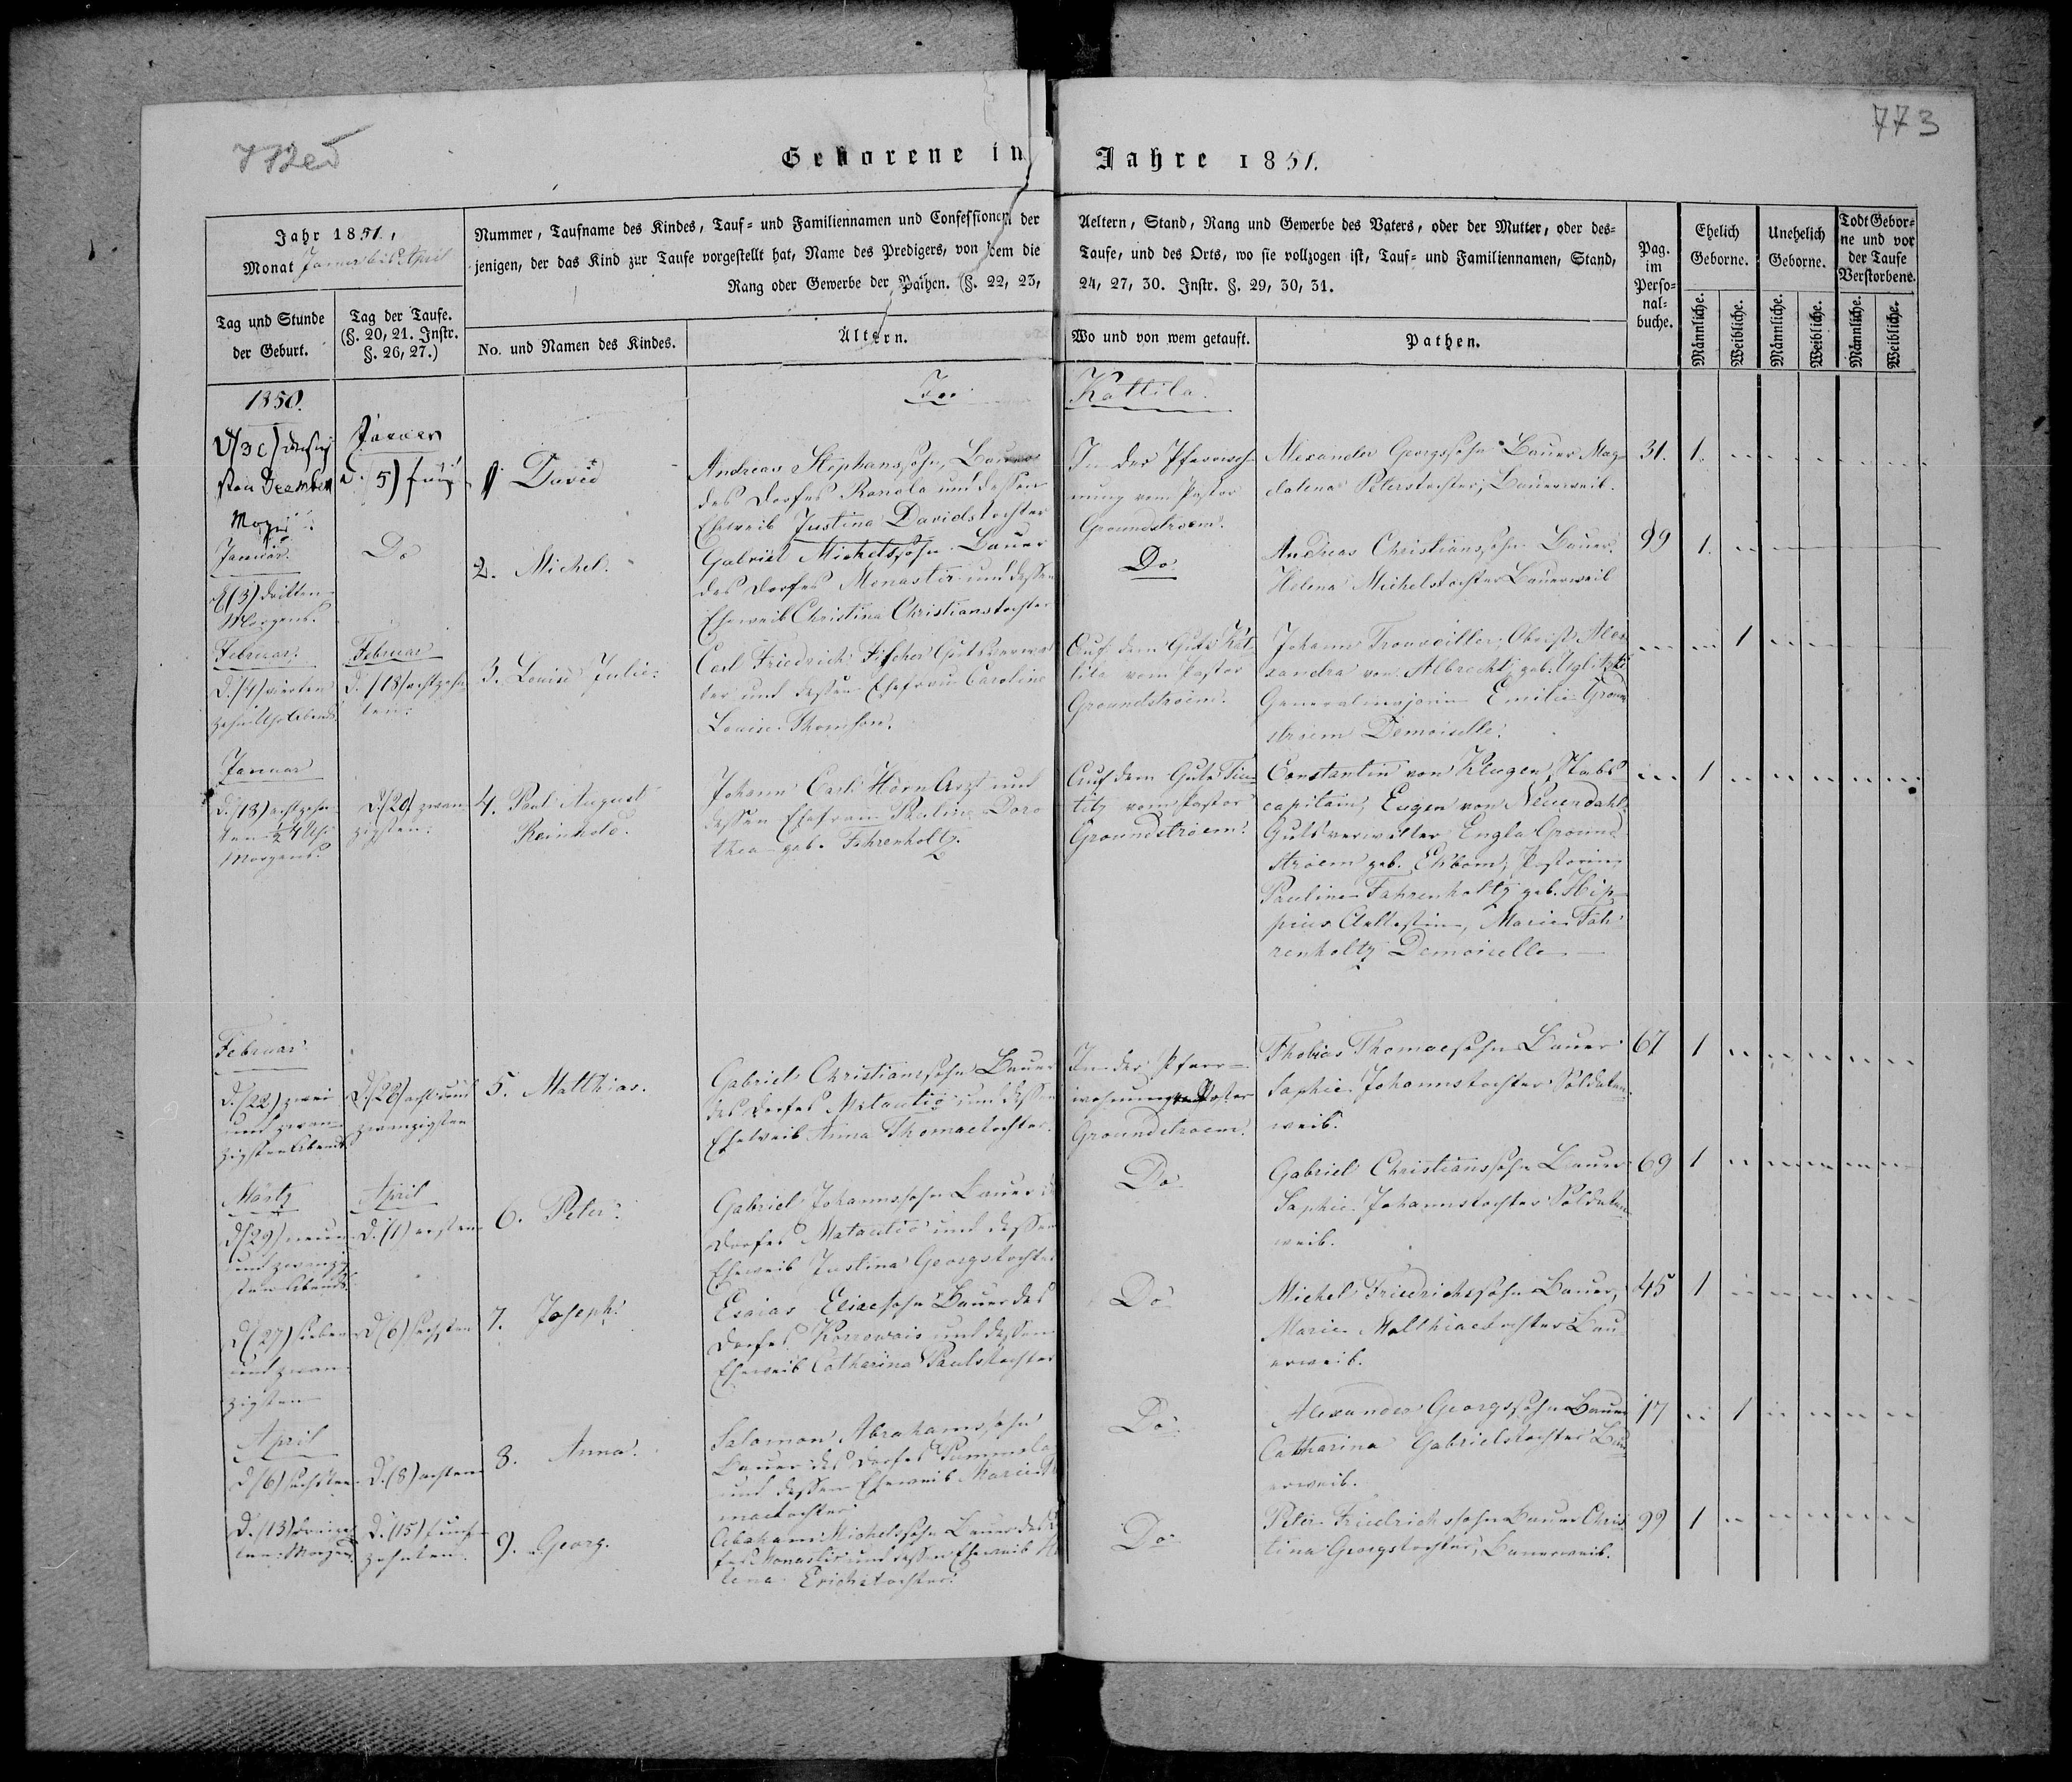 773
Geborene im Jahre 1851.
Jahr 1851,
Monat Januar bis April
Nummer, Taufname des Kindes, Tauf- und Familiennamen und Confessionen der Aeltern, Stand, Rang und Gewerbe des Vaters, oder der Mutter, oder des-
jenigen, der das Kind zur Taufe vorgestellt hat, Name des Predigers, von dem die Taufe, und des Orts, wo sie vollzogen ist, Tauf- und Familiennamen, Stand,
Rang oder Gewerbe der Pathen. (§. 22, 23, 24, 27, 30. Instr. §. 29, 30, 31.
Pag. im Perso-nal-buche.
Ehelich Geborne.
Unehelich Geborne.
Todt Gebor-ne und vor der Taufe Verstorbene.
Tag und Stunde der Geburt.
Tag der Taufe. (§. 20, 21. Instr. §. 26, 27.)
No. und Namen des Kindes.
Ältern.
Wo und von wem getauft.
Pathen.
Männliche. Weibliche. Männliche. Weibliche. Männliche. Weibliche.
1850.
Kattila.
Januar
David
Andreas Stephanssohn, Bauer
des Dorfes Ranola und dessen
Eheweib Justina Davidstochter
In der Pfarrwoh-
nung vom Pastor
Groundstroem.
Alexander Georgssohn Bauer Mag-
dalena Peterstochter, Bauerweib.
31. 1.
Januar
d (3) dritten
Morgens.
Do
2. Michel.
Gabriel Michelssohn Bauer
des Dorfes Monastir und dessen
Eheweib Christina Christianstochter
Do
Andreas Christianssohn Bauer.
Helena Michelstochter Bauerweib
99 1.
Februar
d. (4) vierten
Februar
d. (18) achtzehn-
ten.
3. Louise Julie.
Carl Friedrich Fischer Gutsverwal-
ter und dessen Ehefrau Caroline
Louise Thomson.
Auf dem Gute Kat-
tila vom Pastor
Groundstroem.
Johann Trouveiller, Oberst. Alex-
xandra von Albrecht geb. Uglitzki
Generalmajorin Emilie Groun-
stroem Demoiselle.
1
Januar
d. (18) achtzehn-
ten ½ 4 Uhr
Morgens.
d. (20) zwan-
zigsten.
4. Paul August
Reinhold.
Johann Carl Hörn Arzt und
dessen Ehefrau Pauline Doro-
thea geb. Fahrenholtz.
Auf dem Gute
vom Pastor
Groundstroem.
Constantin von Klugen, Stabs-
capitain, Eugen von Neuendahl
Gutsverwalter Engla Ground-
stroem geb. Ekbom, Pastorin,
Pauline Fahrenholtz geb. Hip-
pius, Marie Fah-
renholtz Demoiselle
1
Februar
d. (22) zwei
und zwan-
zigsten Abends
d. (28) acht und
zwanzigsten
5. Matthias.
Gabriel Christianssohn Bauer
des Dorfes Matautio und dessen
Eheweib Anna Thomaetochter.
In der Pfarr-
wohnung vom Pastor
Groundstroem.
Thobias Thomaesohn Bauer
Sophie Johannstochter Soldaten-
weib.
67 1
Märtz
d (29) neun
und zwanzig-
sten Abends
April
d. (1) ersten
6. Peter.
Gabriel Johannssohn Bauer des
Dorfes Matautio und dessen
Eheweib Justina Georgstochter
Do
Gabriel Christianssohn Bauer
Sophie Johannstochter Soldaten-
weib.
69 1
d (27) sieben
und zwan-
zigsten
d (6) sechsten
7. Joseph.
Esaias Eliaesohn Bauer des
Dorfes Korrowais und dessen
Eheweib Catharina Paulstochter
Do
Michel Friedrichssohn Bauer,
Marie Matthiaetochter Bau-
erweib.
45 1
April
d (6) sechsten
d. (8) achten
8. Anna.
Salomon Abrahamssohn
Bauer des Dorfes Pummala
und dessen Eheweib Marie
maetochter
Do
Alexander Georgssohn Bauer
Catharina Gabrielstochter Bau-
erweib.
17 1
d. (13) dreizehn-
ten Morgens
d. (15) fünf-
zehnten.
9. Georg.
Abraham Michelssohn Bauer des Dor-
fes Monastir und dessen Eheweib He-
lena Erichstochter.
Do
Peter Friedrichssohn Bauer Chris-
tina Georgstochter, Bauerweib.
99 1